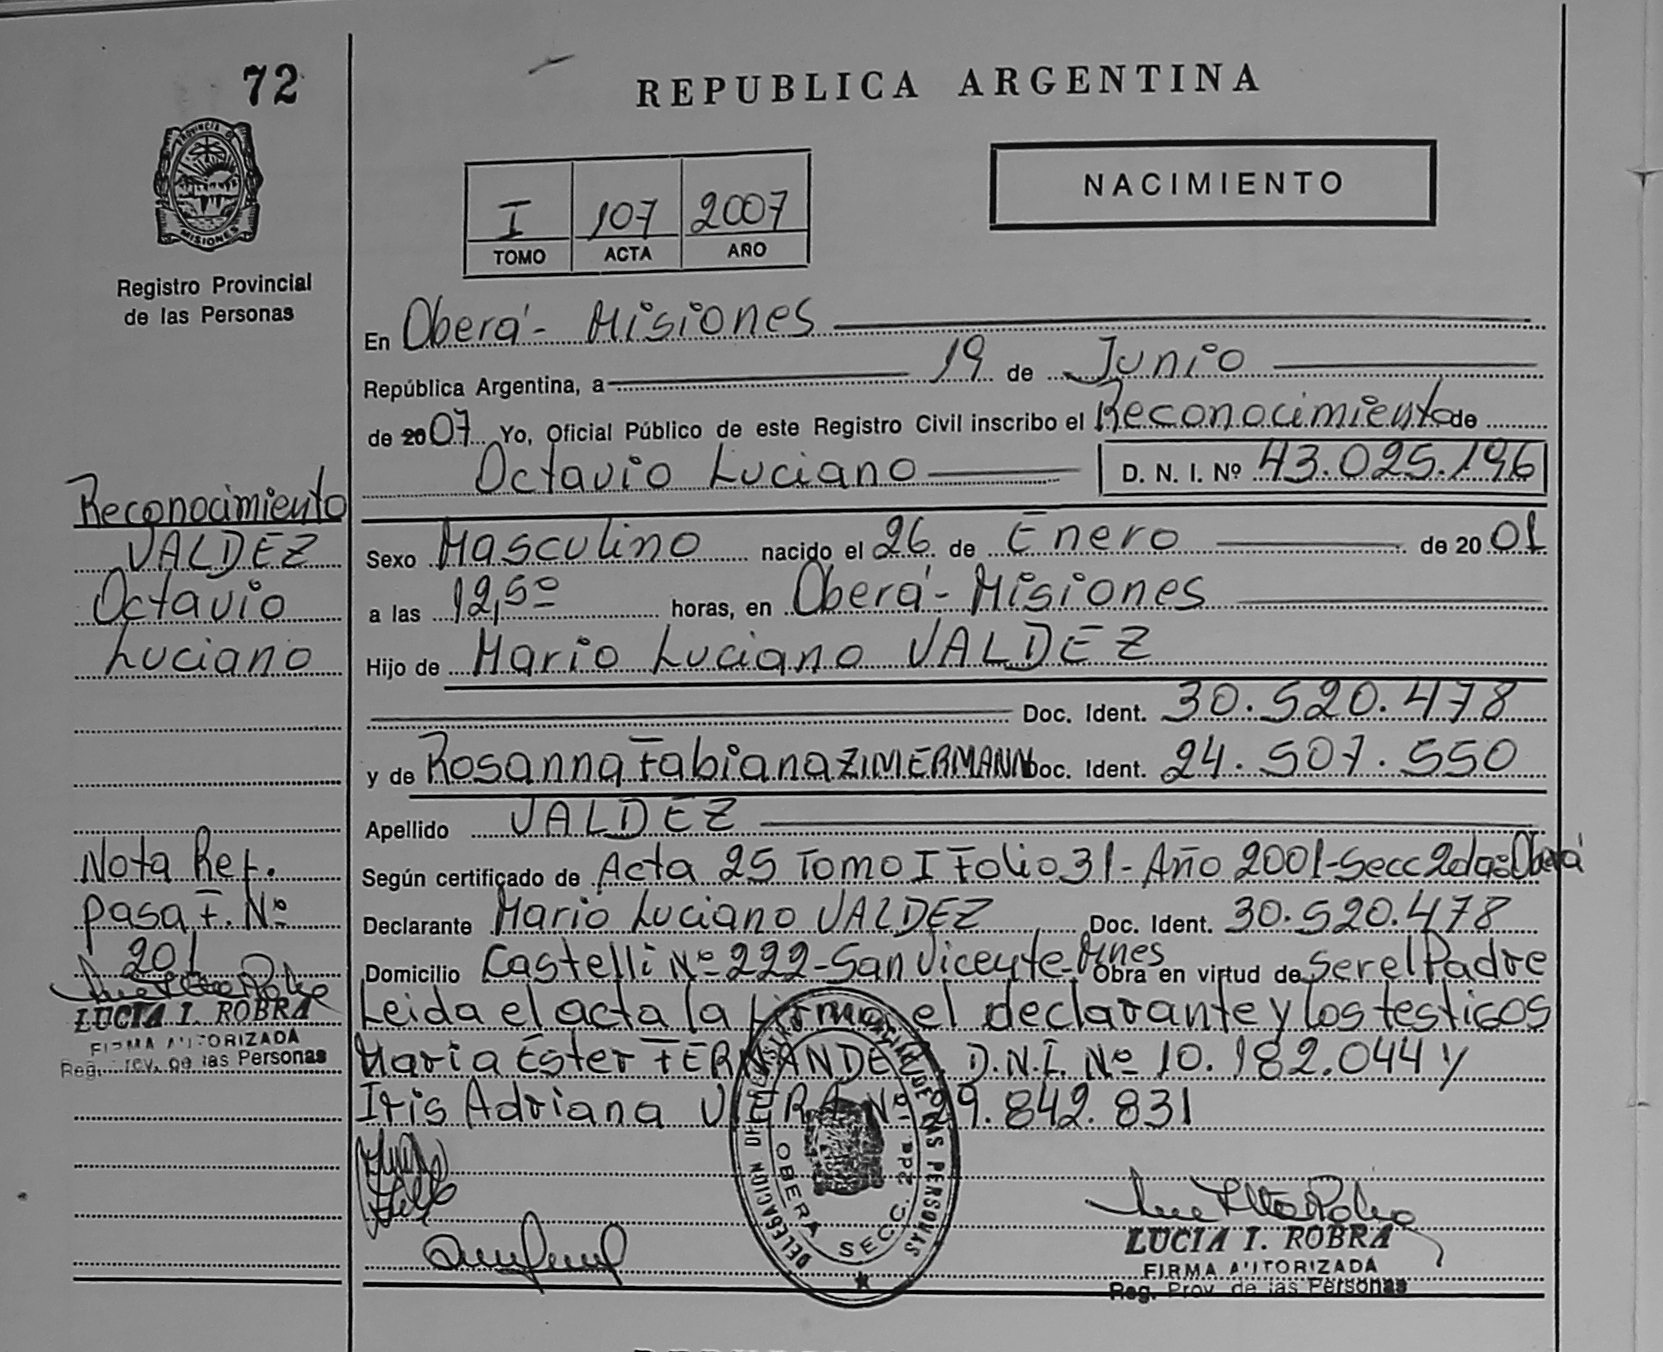 72
REPUBLICA ARGENTINA
PROVINCIA DE
MISIONES
Registro Provincial
de las Personas
I 107 2007
TOMO ACTA AÑO
NACIMIENTO
En Oberá - Misiones
República Argentina, a 19 de Junio
de 2007 Yo, Oficial Público de este Registro Civil inscribo el Reconocimiento de
Octavio Luciano D. N. I. Nº 43.025.196
Sexo Masculino nacido el 26 de Enero de 2001
a las 12,50 horas, en Oberá - Misiones
Hijo de Mario Luciano VALDEZ
Doc. Ident. 30.520.478
y de Rosanna Fabiana ZIMERMANN Doc. Ident. 24.507.550
Apellido VALDEZ
Según certificado de Acta 25 Tomo I Folio 31 - Año 2001 - Secc 2da - Oberá
Declarante Mario Luciano VALDEZ Doc. Ident. 30.520.478
Domicilio Castelli Nº 222 - San Vicente Mnes Obra en virtud de ser el Padre
Leida el acta la firman el declarante y los testigos
Maria Ester FERNANDEZ D.N.I. Nº 10.182.044 y
Iris Adriana VIERA Nº 29.842.831
Reconocimiento
VALDEZ
Octavio
Luciano
Nota Ref.
pasa F. Nº
201
LUCIA I. ROBRA
FIRMA AUTORIZADA
Reg. Prov. de las Personas
DELEGACION
DE LAS PERSONAS
OBERA SECC. 2da.
LUCIA I. ROBRA
FIRMA AUTORIZADA
Reg. Prov. de las Personas